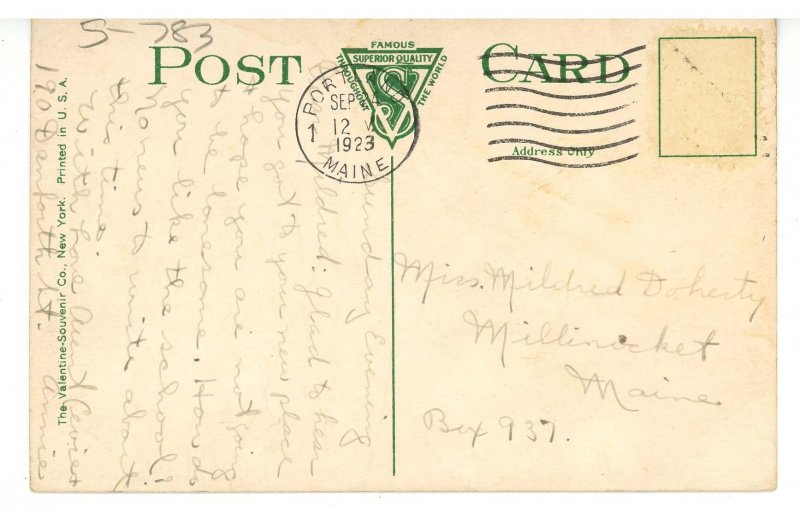 5-783
POST CARD
FAMOUS
SUPERIOR QUALITY
THROUGHOUT THE WORLD
VS
PORTLAND
SEP
1 12
1923
MAINE
Address Only
Sunday Evening
Mildred: glad to hear
you got to your new place
& hope you are not going
to be lonesome. How do
you like the school?
Norum't write about
this time.
With love Aunt
Annie
190 Danforth St.
Miss. Mildred Doherty
Millinocket
Maine
Box 937.
The Valentine-Souvenir Co., New York. Printed in U. S. A.